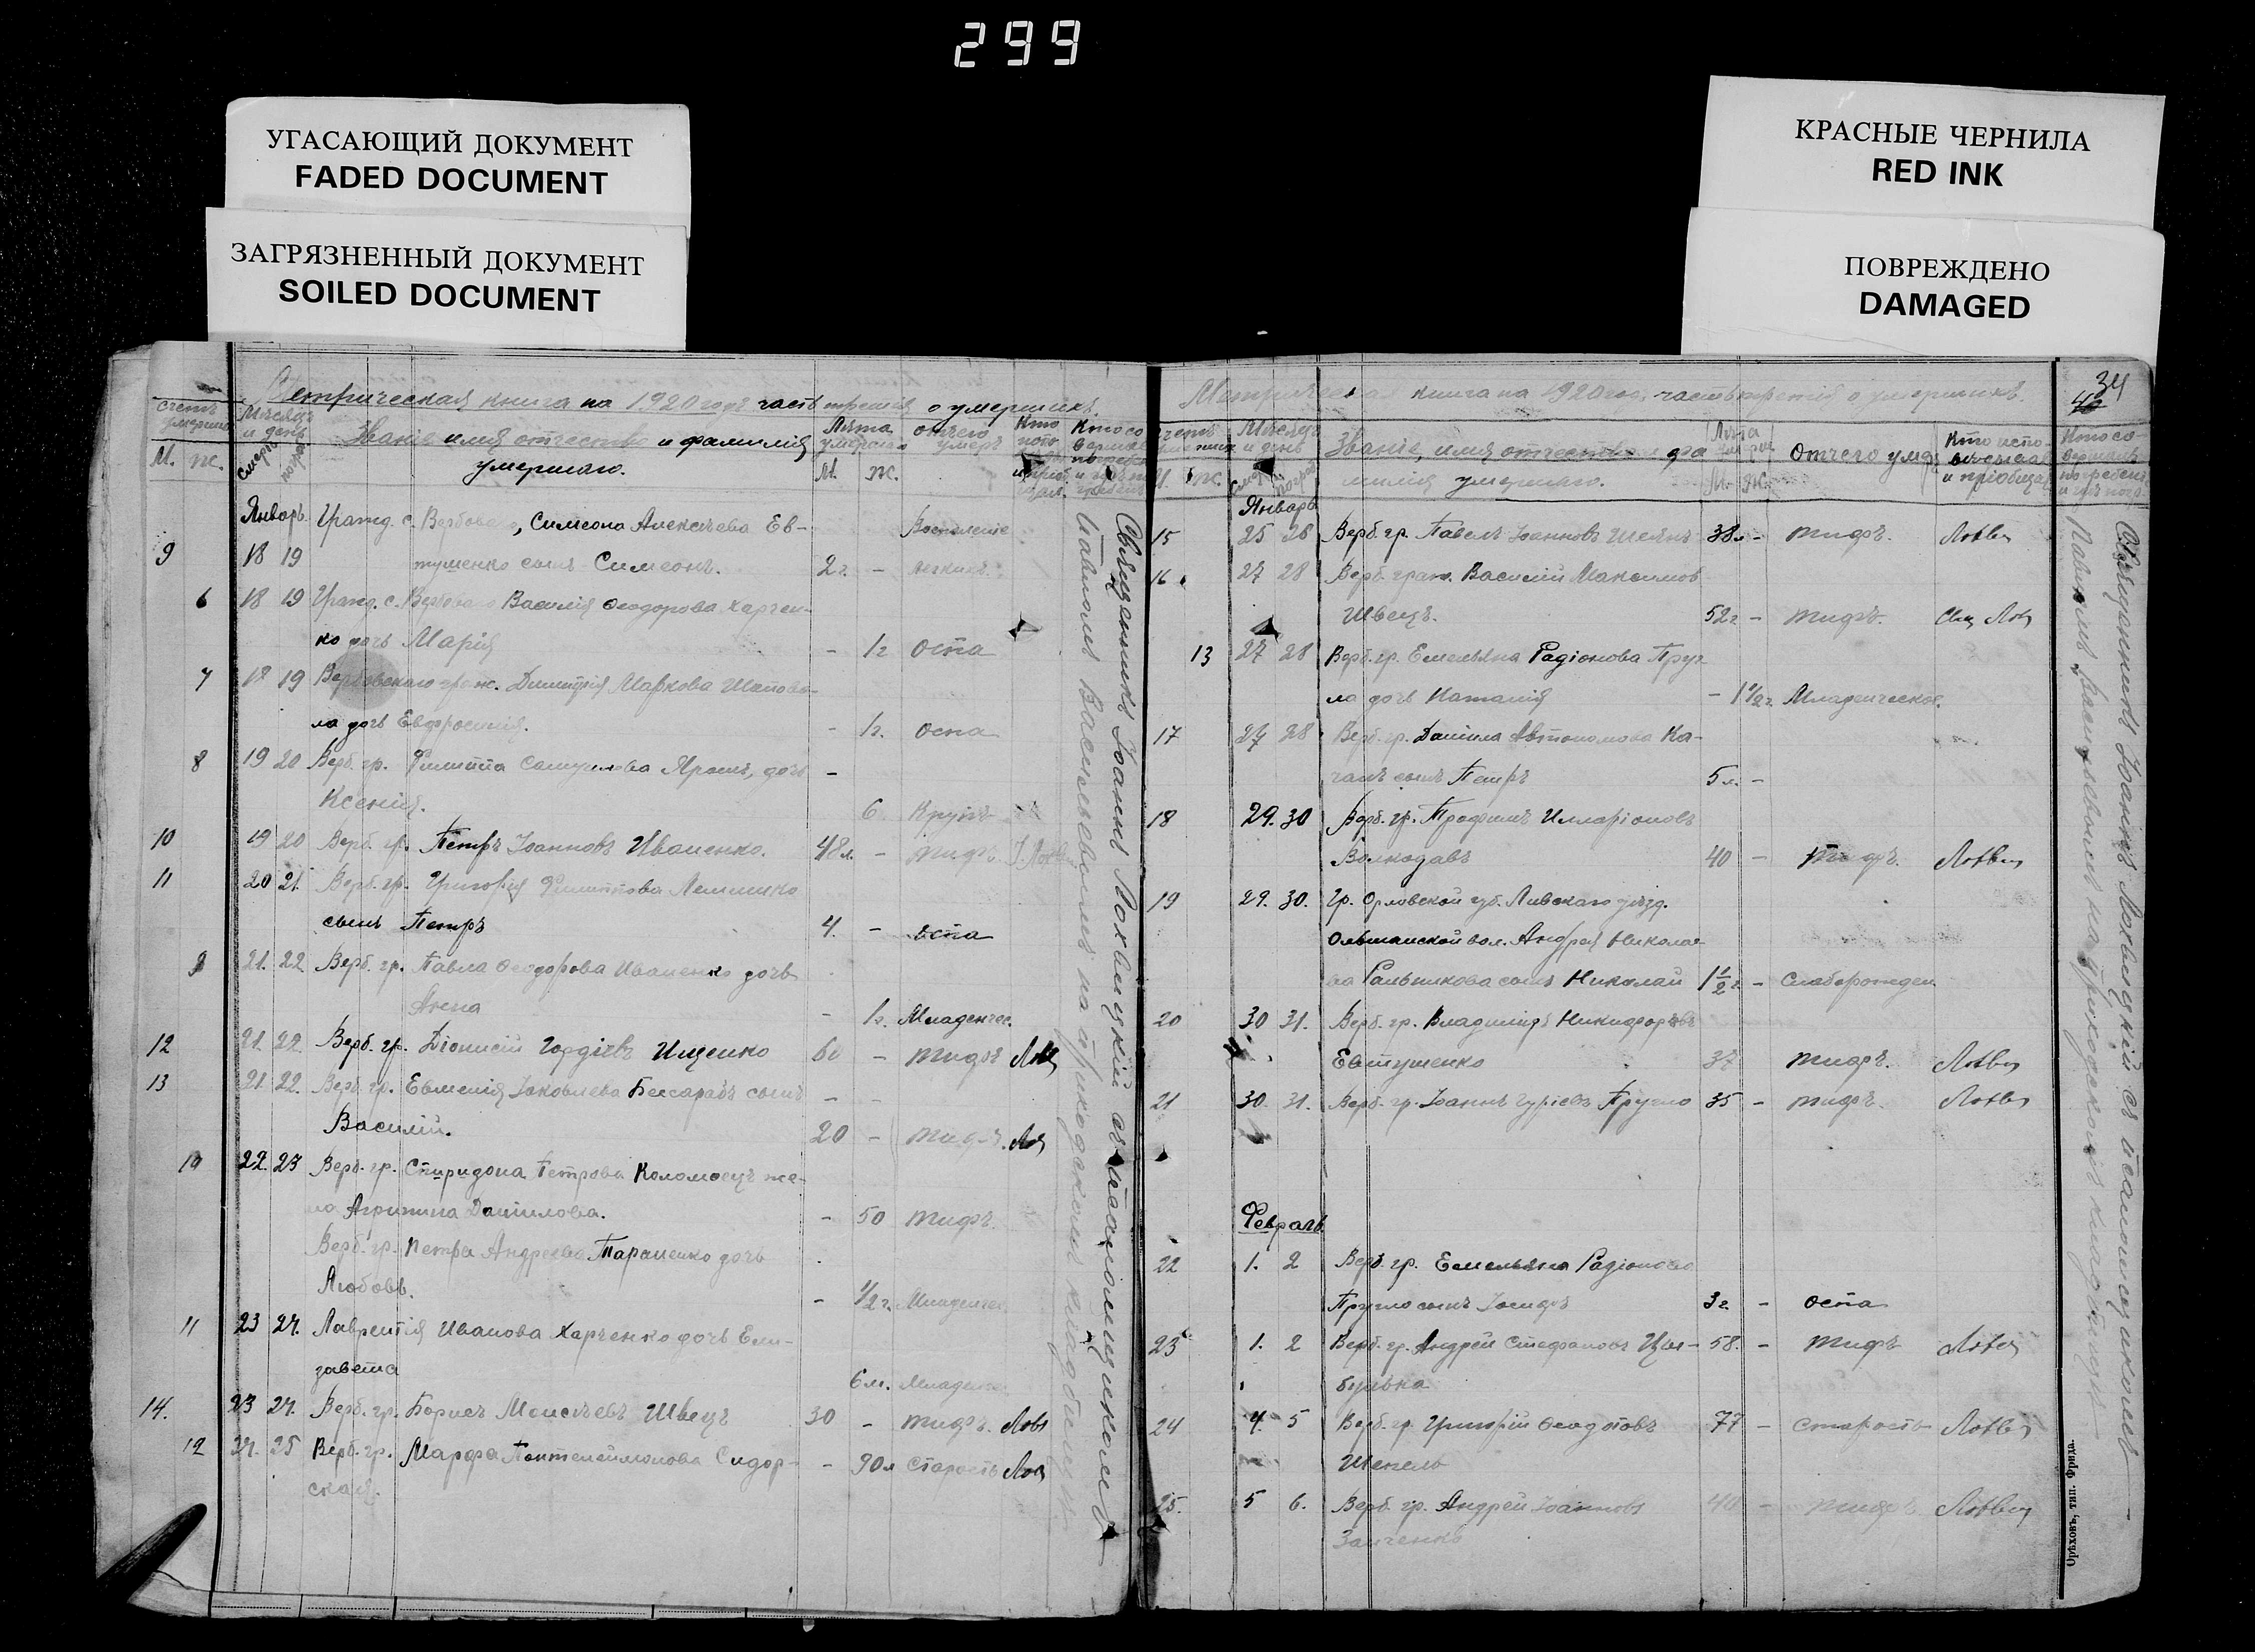 299
УГАСАЮЩИЙ ДОКУМЕНТ
FADED DOCUMENT
ЗАГРЯЗНЕННЫЙ ДОКУМЕНТ
SOILED DOCUMENT
КРАСНЫЕ ЧЕРНИЛА
RED INK
ПОВРЕЖДЕНО
DAMAGED
Метрическая книга на 1920 годъ часть третія о умершихъ.
счетъ умерших
М. Ж.
Мѣсяцъ и день
смерти погреб
Званіе имя отчество и фамилія
умершаго.
Лѣта умершаго
М. Ж.
отчего умеръ
Январь Гражд. с. Вербоваго, Симеона Алексѣева Ев-
Воспаленіе
9 18 19 тушенко сынъ Симеонъ. 2г. - легкихъ.
6 18 19 Гражд. с. Вербоваго Василія Ѳеодорова Харчен-
ко дочь Марія - 1г оспа
7 18 19 Вербовскаго граж. Димитрія Маркова Шапова-
ла дочь Евфросинія. - 1г. оспа
8 19 20 Верб. гр. Филиппа Яроша, дочь -
Ксенія. 6 Крупъ
10 19 20 Верб. гр. Петръ Іоанновъ Иваненко. 48л. - тифъ.
11 20 21. Верб. гр. Григорія Филиппова
сынъ Петръ 4. - оспа
9 21. 22 Верб. гр. Павла Ѳеодорова Иваненко дочь
Анна - 1г. Младенчес.
12 21. 22. Верб. гр. Діонисій Гордіевъ Ищенко 60 - тифъ
13 21. 22. Верб. гр. Евменія Іаковлева Бессарабъ сынъ - -
Василій. 20 - тифъ.
10 22. 23 Верб. гр. Спиридона Петрова Коломоецъ же-
на Агрипина Даниилова. - 50 тифъ.
Верб. гр. Петра Андреева Тараненко дочь
Любовь. - 1/2 г. Младенчес.
11 23 24. Лаврентія Иванова Харченко дочь Ели-
завета 6м. Младенч.
14. 23 24. Верб. гр. Борисъ Моисѣевъ Швецъ 30 - тифъ.
12 24. 25 Верб. гр. Марфа Пантелеимонова Сидор- - 90л старость
ская.
Священникъ Іоаннъ Лохвицкій съ псаломщикомъ
Павломъ Васильевымъ на приходскомъ кладбищѣ
34
40
Метрическая книга на 1920 год, часть третія о умершихъ.
М. Ж.
Мѣсяцъ и день
Званіе, имя отчество и фа
милія умершаго.
Лѣта
М. Ж.
Отчего умеръ
Кто испо-
вѣдывал
и пріобщал
Кто со-
вершалъ
погребен.
Январь
15 25 26 Верб. гр. Павелъ Іоанновъ 38л - тифъ. Лохвиц
16 27 28 Верб. граж. Василій Максимов
Швецъ. 52г - тифъ. Свщ Лох
13 27 28 Верб. гр. Емельяна Радіонова Пруг-
ла дочь Наталія - 1 1/2 г. Младенческое.
17 27 28 Верб. гр. Даніила Автономова Ка-
чанъ сынъ Петръ 5л. -
18 29. 30 Верб. гр. Трофимъ Илларіоновъ
Волкодавъ 40 - тифъ. Лохвиц
19 29. 30. Гр. Орловской губ. Ливскаго уѣзд.
Ольшанской вол. Андрея Николае-
ва сынъ Николай 1 1/2 г - Слаборожден
20 30 31. Верб. гр. Владиміръ Никифоровъ
Евтушенко 37 тифъ. Лохвиц
21 30. 31. Верб. гр. Іоаннъ Гуріевъ Пругло 35 - тифъ. Лохвиц
Февраль
22 1. 2 Верб. гр. Емельяна Радіонова
Пругло сынъ Іосифъ 3г - оспа
23 1. 2 Верб. гр. Андрей Стефановъ Цы- 58. - тифъ Лохвиц
булька
24 4. 5 Верб. гр. Григорій Ѳеодотовъ 77 - старость Лохвиц
Шепель
25. 5 6. Верб. гр. Андрей Іоанновъ 40 - тифъ Лохвиц
Заиченко
Священникъ Іоаннъ Лохвицкій съ псаломщикомъ
Павломъ Васильевымъ на приходскомъ кладбищѣ
Орѣховъ, тип. Фрида.